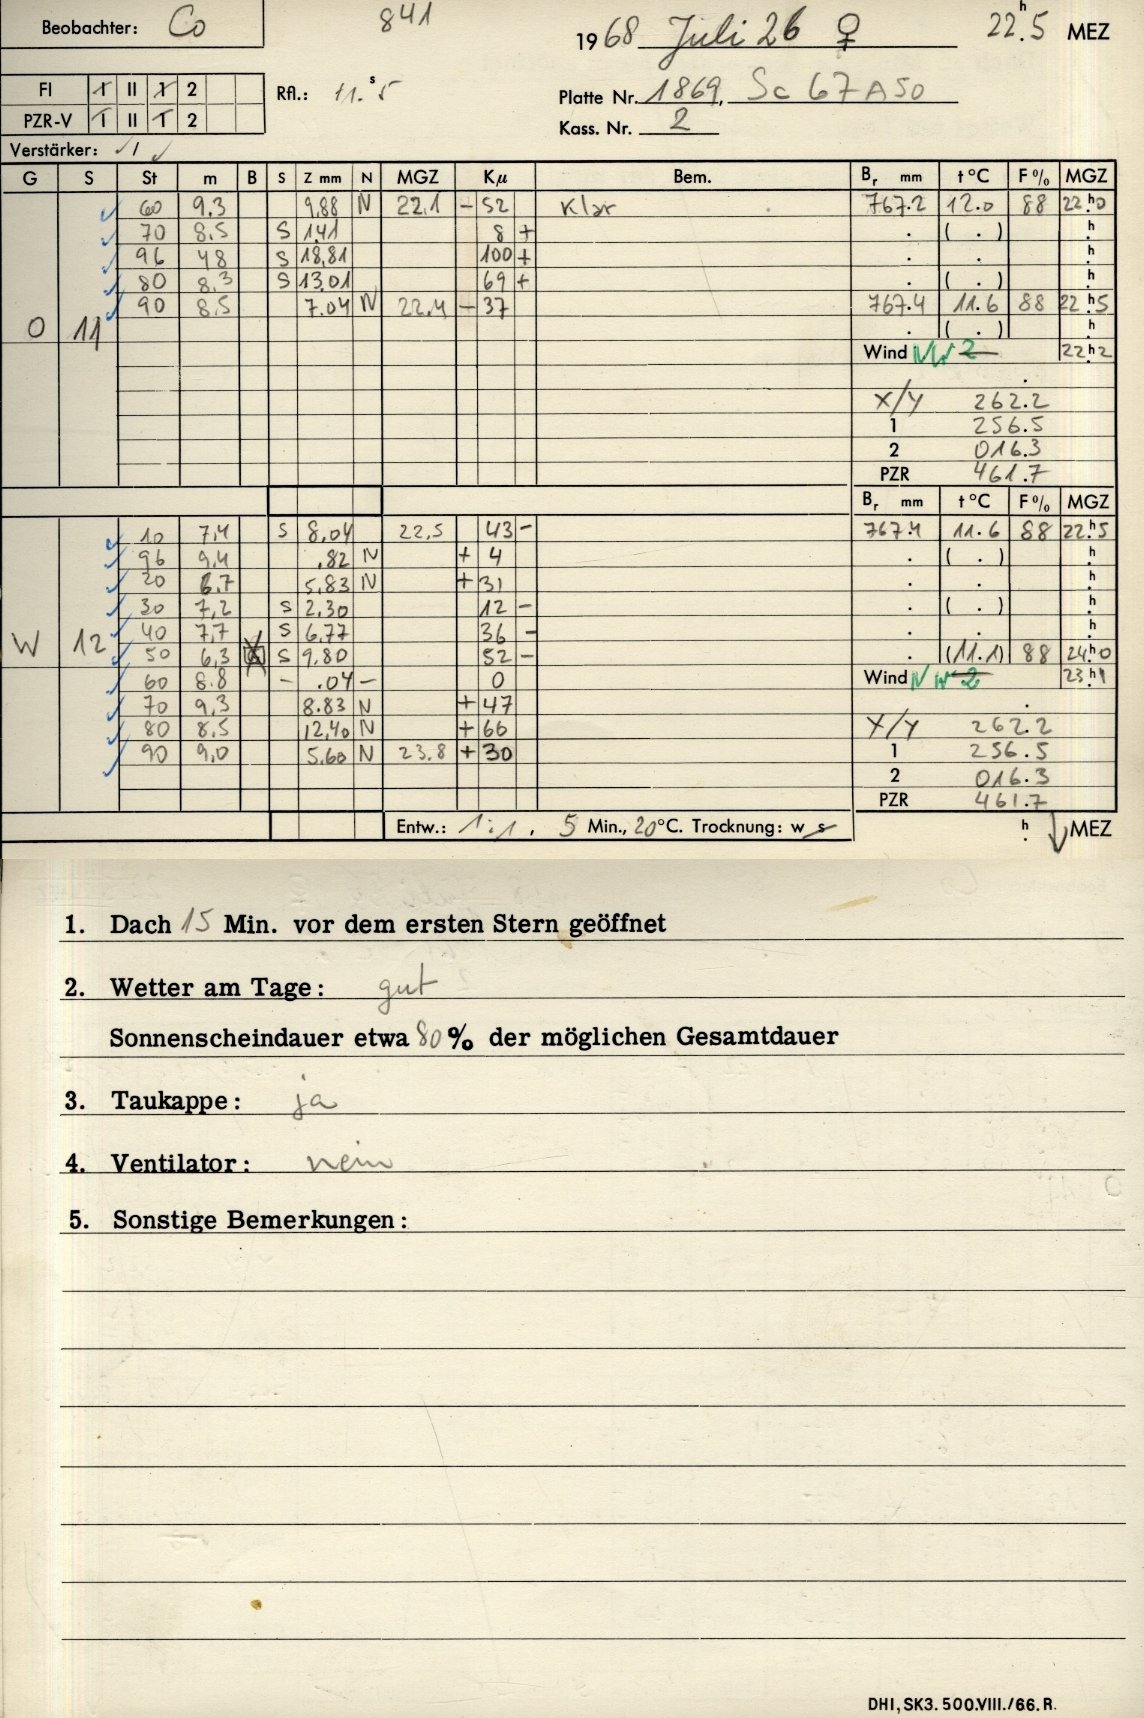 Beobachter: Co 841 1968 Juli 26 ♀ 22.ʰ5 MEZ
FI I II 1 2 Rfl.: 11.ˢ5 Platte Nr. 1869, Sc 67 A 50
PZR-V I II 1 2 Kass. Nr. 2
Verstärker: I
G S St m B S Z mm N MGZ Kμ Bem. Bᵣ mm t °C F % MGZ
60 9.3 9.88 N 22.1 - 52 Klar 767.2 12.0 88 22.ʰ0
70 8.5 S 1.41 8 + . ( . ) ʰ
96 4.8 S 18.81 100 + . . ʰ
80 8.3 S 13.01 69 + . ( . ) ʰ
90 8.5 7.04 N 22.4 - 37 767.4 11.6 88 22.ʰ5
O 11 . ( . ) ʰ
Wind NW 2 22.ʰ2
X/Y 262.2
1 256.5
2 016.3
PZR 461.7
Bᵣ mm t °C F % MGZ
10 7.4 S 8.04 22.5 43 - 767.4 11.6 88 22.ʰ5
96 9.4 .82 N + 4 . ( . ) ʰ
20 6.7 5.83 N + 31 . . ʰ
30 7.2 S 2.30 12 - . ( . ) ʰ
W 12 40 7.7 S 6.77 36 - . . ʰ
50 6.3 S 9.80 52 - . (11.1) 88 24.ʰ0
60 8.8 - .04 - 0 Wind NW 2 23.ʰ1
70 9.3 8.83 N + 47
80 8.5 12.40 N + 66 X/Y 262.2
90 9.0 5.60 N 23.8 + 30 1 256.5
2 016.3
PZR 461.7
Entw.: 1:1, 5 Min., 20°C. Trocknung: w s ʰ MEZ
1. Dach 15 Min. vor dem ersten Stern geöffnet
2. Wetter am Tage: gut
Sonnenscheindauer etwa 80 % der möglichen Gesamtdauer
3. Taukappe: ja
4. Ventilator: nein
5. Sonstige Bemerkungen:
DHI, SK3. 500. VIII. /66. R.